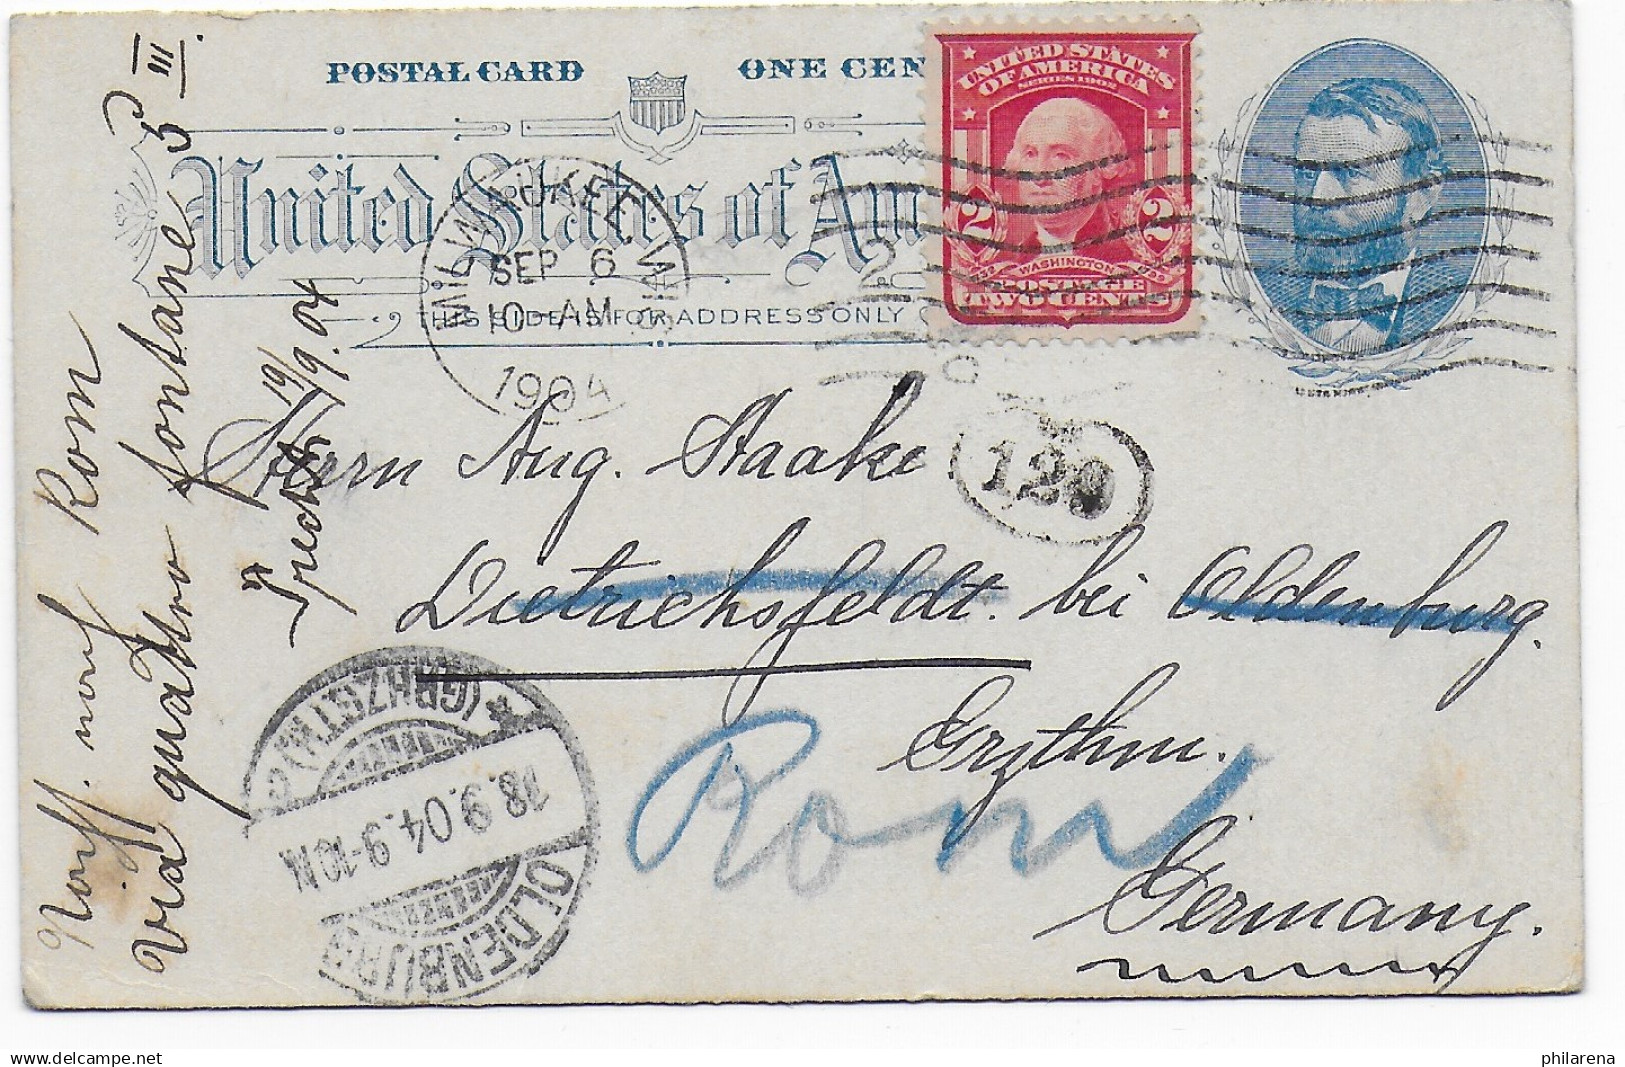 POSTAL CARD ONE CEN
United States of Am
THIS SIDE IS FOR ADDRESS ONLY
UNITED STATES
OF AMERICA
SERIES 1902
2 2
WASHINGTON
POSTAGE
TWO CENTS
MILWAUKEE, WIS.
SEP 6
10-AM
1904
2
120
Herrn Aug. Staake
Dietrichsfeldt. bei Oldenburg.
Grzthm.
Germany.
Rom
OLDENBURG
(GRHZGTM)
18.9.04.9-10N
Rom
via quattro fontane 5 III.
19/9.04
philarena